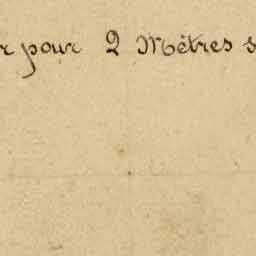 r pour 2 Mètres s